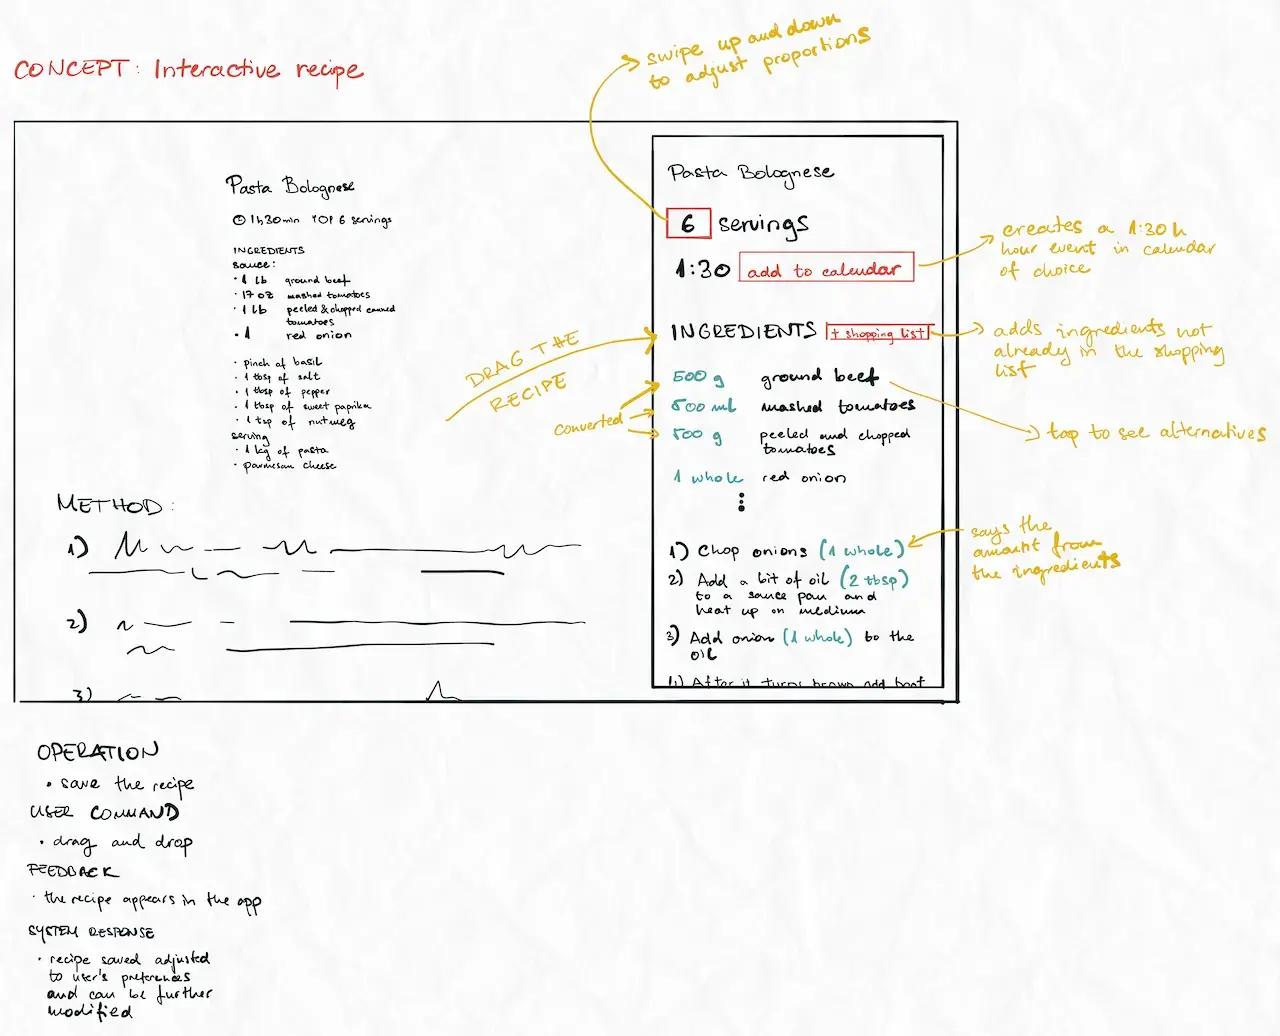 CONCEPT: Interactive recipe
swipe up and down
to adjust proportions
Pasta Bolognese
1h30min 6 servings
INGREDIENTS
sauce:
• 1 lb ground beef
• 17 oz mashed tomatoes
• 1 lb peeled & chopped canned
tomatoes
• 1 red onion
• pinch of basil
• 1 tbsp of salt
• 1 tbsp of pepper
• 1 tbsp of sweet paprika
• 1 tsp of nutmeg
serving
• 1 kg of pasta
• parmesan cheese
METHOD:
1)
2)
3)
DRAG THE
RECIPE
converted
Pasta Bolognese
6 servings
1:30 add to calendar
INGREDIENTS + shopping list
500 g ground beef
500 ml mashed tomatoes
500 g peeled and chopped
tomatoes
1 whole red onion
1) Chop onions (1 whole)
2) Add a bit of oil (2 tbsp)
to a sauce pan and
heat up on medium
3) Add onion (1 whole) to the
oil
4) After it turns brown add
creates a 1:30 h
hour event in calendar
of choice
adds ingredients not
already in the shopping
list
tap to see alternatives
says the
amount from
the ingredients
OPERATION
• save the recipe
USER COMMAND
• drag and drop
FEEDBACK
• the recipe appears in the app
SYSTEM RESPONSE
• recipe saved adjusted
to user's preferences
and can be further
modified